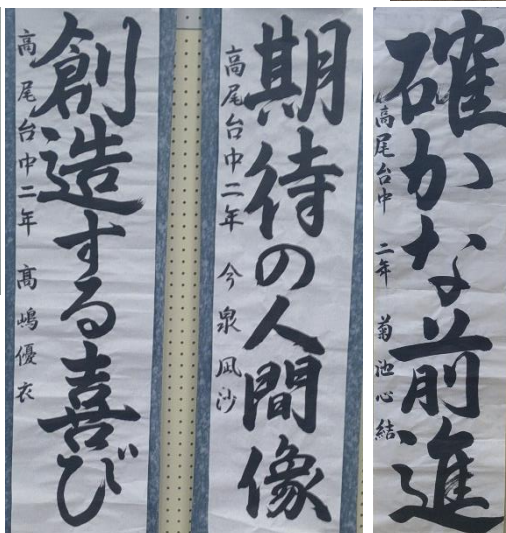 確かな前進
高尾台中 二年 菊池心結
期待の人間像
高尾台中二年 今泉凪沙
創造する喜び
高尾台中二年 髙嶋優衣